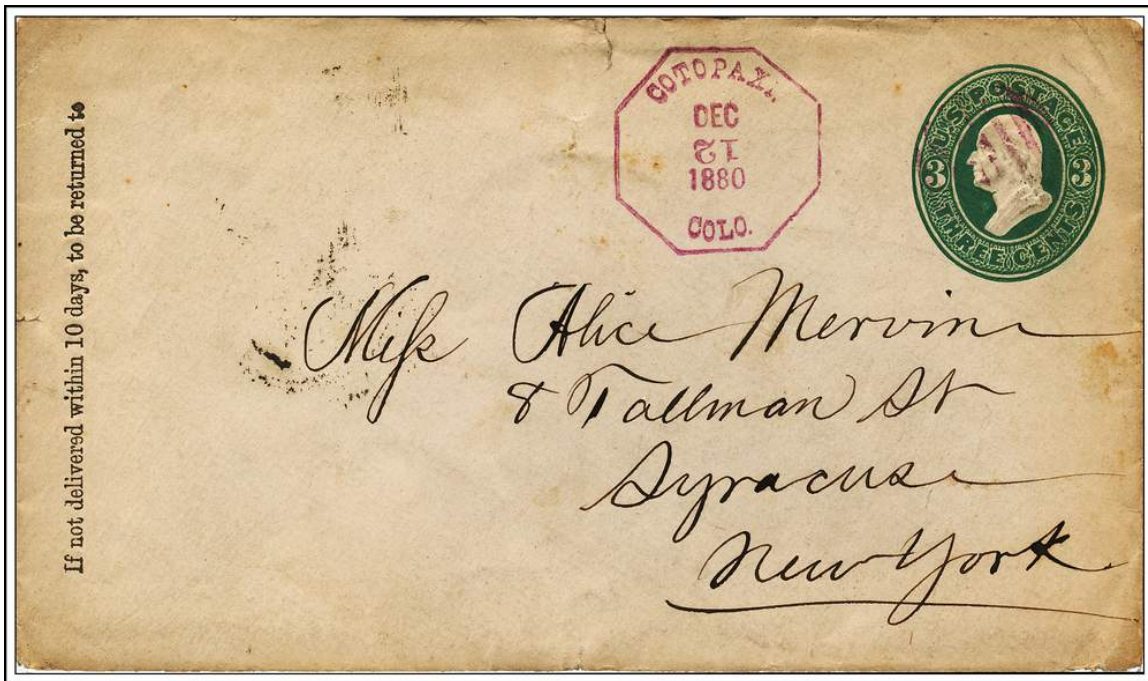 If not delivered within 10 days, to be returned to
COTOPAXI.
DEC
12
1880
COLO.
U.S. POSTAGE
3 3
THREE CENTS
Miss Alice Mervine
8 Tallman St
Syracuse
New York